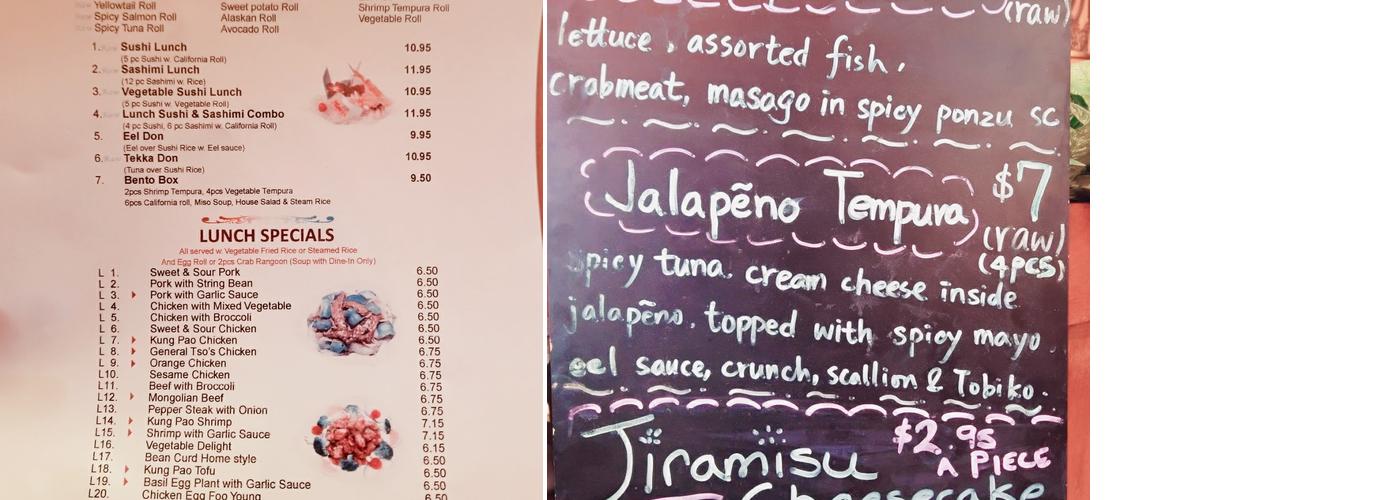 Yellowtail Roll Sweet potato Roll Shrimp Tempura Roll
Spicy Salmon Roll Alaskan Roll Vegetable Roll
Spicy Tuna Roll Avocado Roll
1. Sushi Lunch 10.95
(5 pc Sushi w. California Roll)
2. Sashimi Lunch 11.95
(12 pc Sashimi w. Rice)
3. Vegetable Sushi Lunch 10.95
(5 pc Sushi w. Vegetable Roll)
4. Lunch Sushi & Sashimi Combo 11.95
(4 pc Sushi, 6 pc Sashimi w. California Roll)
5. Eel Don 9.95
(Eel over Sushi Rice w. Eel sauce)
6. Tekka Don 10.95
(Tuna over Sushi Rice)
7. Bento Box 9.50
2pcs Shrimp Tempura, 4pcs Vegetable Tempura
6pcs California roll, Miso Soup, House Salad & Steam Rice
LUNCH SPECIALS
All served w. Vegetable Fried Rice or Steamed Rice
And Egg Roll or 2pcs Crab Rangoon (Soup with Dine-In Only)
L 1. Sweet & Sour Pork 6.50
L 2. Pork with String Bean 6.50
L 3. Pork with Garlic Sauce 6.50
L 4. Chicken with Mixed Vegetable 6.50
L 5. Chicken with Broccoli 6.50
L 6. Sweet & Sour Chicken 6.50
L 7. Kung Pao Chicken 6.50
L 8. General Tso's Chicken 6.75
L 9. Orange Chicken 6.75
L10. Sesame Chicken 6.75
L11. Beef with Broccoli 6.75
L12. Mongolian Beef 6.75
L13. Pepper Steak with Onion 6.75
L14. Kung Pao Shrimp 7.15
L15. Shrimp with Garlic Sauce 7.15
L16. Vegetable Delight 6.15
L17. Bean Curd Home style 6.50
L18. Kung Pao Tofu 6.50
L19. Basil Egg Plant with Garlic Sauce 6.50
L20. Chicken Egg Foo Young 6.50
(raw)
lettuce, assorted fish,
crabmeat, masago in spicy ponzu sc
Jalapẽno Tempura $7
(raw)
(4pcs)
spicy tuna, cream cheese inside
jalapẽno, topped with spicy mayo
eel sauce, crunch, scallion & Tobiko.
Tiramisu $2.95
A PIECE
Cheesecake